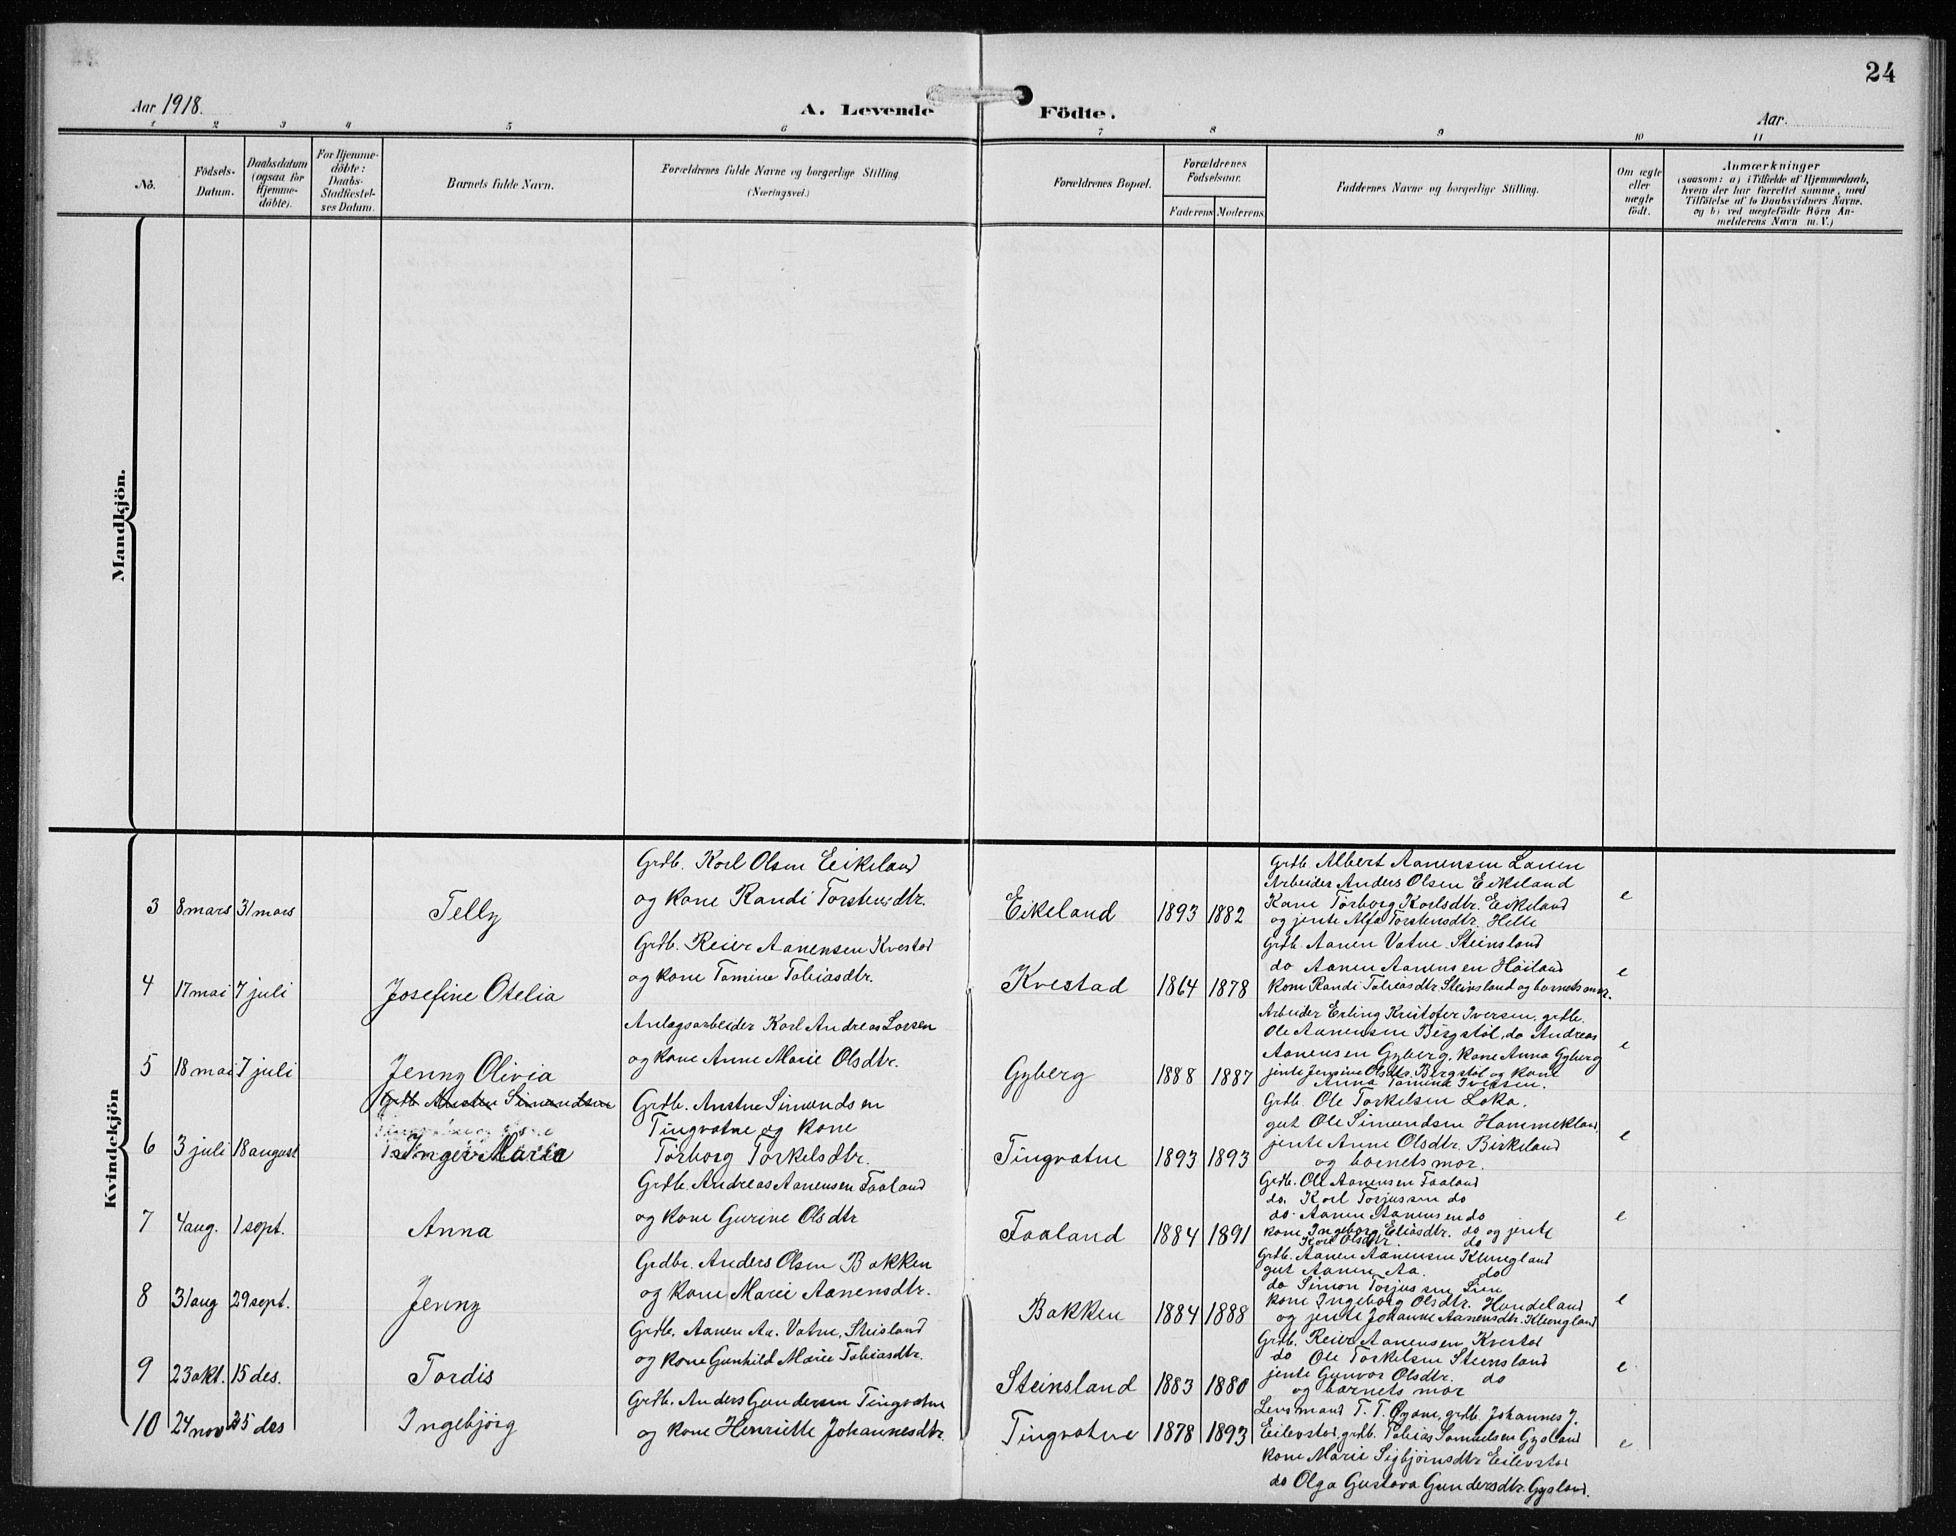 24
Aar 1918.
A. Levende Födte.
Aar.
1 2 3 4 5 6 7 8 9 10 11
No.
Födsels-Datum.
Daabsdatum (ogsaa for Hjemme-döbte).
For Hjemme-döbte: Daabs-Stadfæstel-ses Datum.
Barnets fulde Navn.
Forældrenes fulde Navne og borgerlige Stilling (Næringsvei.)
Forældrenes Bopæl.
Forældrenes Födselsaar.
Faderens Moderens
Faddernes Navne og borgerlige Stilling.
Om ægte eller uægte födt.
Anmærkninger
(saasom: a) i Tilfælde af Hjemmedaab,
hvem der har forrettet samme, med
Tilföielse af to Daabsvidners Navne.
og b) ved uægtefödte Börn An-
melderens Navn m. V.)
Mandkjön.
Kvindekjön
3 8 mars 31 mars Telly
Grdb. Karl Olsen Eikeland
og kone Randi Torstensdtr.
Eikeland 1893 1882
Grdb. Albert Aanensen Lanen
Arbeider Anders Olsen Eikeland
Kone Torborg Karlsdtr. Eikeland
og jente Alfa Torstensdtr. Helle
e
4 17 mai 7 juli Josefine Otelia
Grdb. Reier Aanensen Kvestad
og kone Tomine Tobiasdtr.
Kvestad 1864 1878
Grdb. Aanen Vatne. Steinsland
do Aanen Aanensen Høiland
kone Randi Tobiasdtr Steinsland og barnets mor.
e
5 18 mai 7 juli Jenny Olivia
Anlægsarbeider Karl Andreas Larsen
og kone Anne Marie Olsdtr.
Gyberg 1888 1887
Arbeider Erling Kristofer Iversen, grdb.
Ole Aanensen Bergstøl, do Andreas
Aanensen Gyberg, kone Anna Gyberg
jente Jensine Olsdtr. Bergstøl og kone
Anna Tomine Iversen.
e
Grdb Austen Simundsen
6 3 juli 18 august Inger Marie
Grdb. Austne Simundsen
Tingvatne og kone
Torborg Torkelsdtr.
Tingvatne 1893 1893
Grdb. Ole Torkelsen Loka.
gut Ole Simundsen Hammekland,
jente Anne Olsdtr. Birkeland
og barnets mor.
e
7 4 aug. 1 sept. Anna
Grdb. Andreas Aanensen Faaland
og kone Gurine Olsdtr
Faaland 1884 1891
Grdb. Ole Aanensen Faaland
do. Karl Torjussen do
do. Aanen Aanensen do
kone Ingeborg Eliasdtr. do og jente
Olsdtr. do
e
8 31 aug 29 sept. Jenny
Grdbr. Anders Olsen Bakken
og kone Marie Aanensdtr.
Bakken 1884 1888
Grdb. Aanen Aanensen Klungland
gut Aanen Aa. do
do Simon Torjussen Lien
kone Ingeborg Olsdtr. Handeland
og jente Johanne Aanensdtr. Klungland
e
9 23 okt. 15 des. Tordis
Grdb. Aanen Aa. Vatne, Steisland
og kone Gunhild Marie Tobiasdtr.
Steinsland 1883 1880
Grdb. Reier Aanensen Kvestad
do Ole Torkelsen Steinsland
jente Gunvor Olsdtr. do
og barnets mor
e
10 24 nov 25 des Ingebjørg
Grdb. Anders Gundersen Tingvatne
og kone Henriette Johannesdtr.
Tingvatne 1878 1893
Lensmand T. T. Øgane, grdb. Johannes J.
Eilevstad, grdb. Tobias Samuelsen Gysland
kone Marie Sigbjørnsdtr Eilevstad
do Olga Gustava Gundersdtr. Gysland.
e